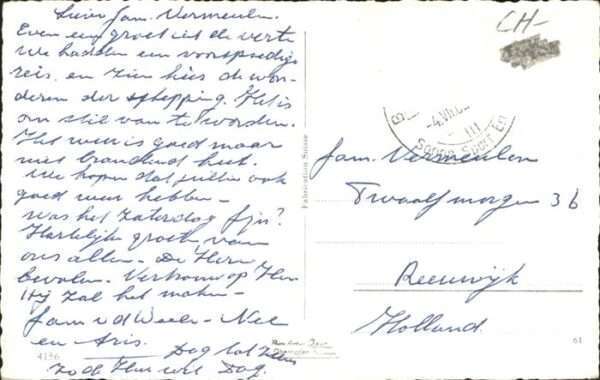 Lieve fam. Vermeulen.
Even een groet uit de verte
We hadden een voorspoedige
reis, en zien hier de won-
deren der schepping. Het is
om stil van te worden.
Het weer is goed maar
niet brandend heet.
We hopen dat jullie ook
goed weer hebben -
was het zaterdag fijn?
Hartelijke groeten van
ons allen - De Here
bevolen. Vertrouw op Hem
Hij zal het maken -
fam v d Weele - Nel
en Aris.
Dag tot ziens
zo de Here wil Dag.
4136
Fabrication Suisse
CH-
-4.VII.
III
Fam. Vermeulen
Twaalfmorgen 36
Reeuwijk
Holland.
61